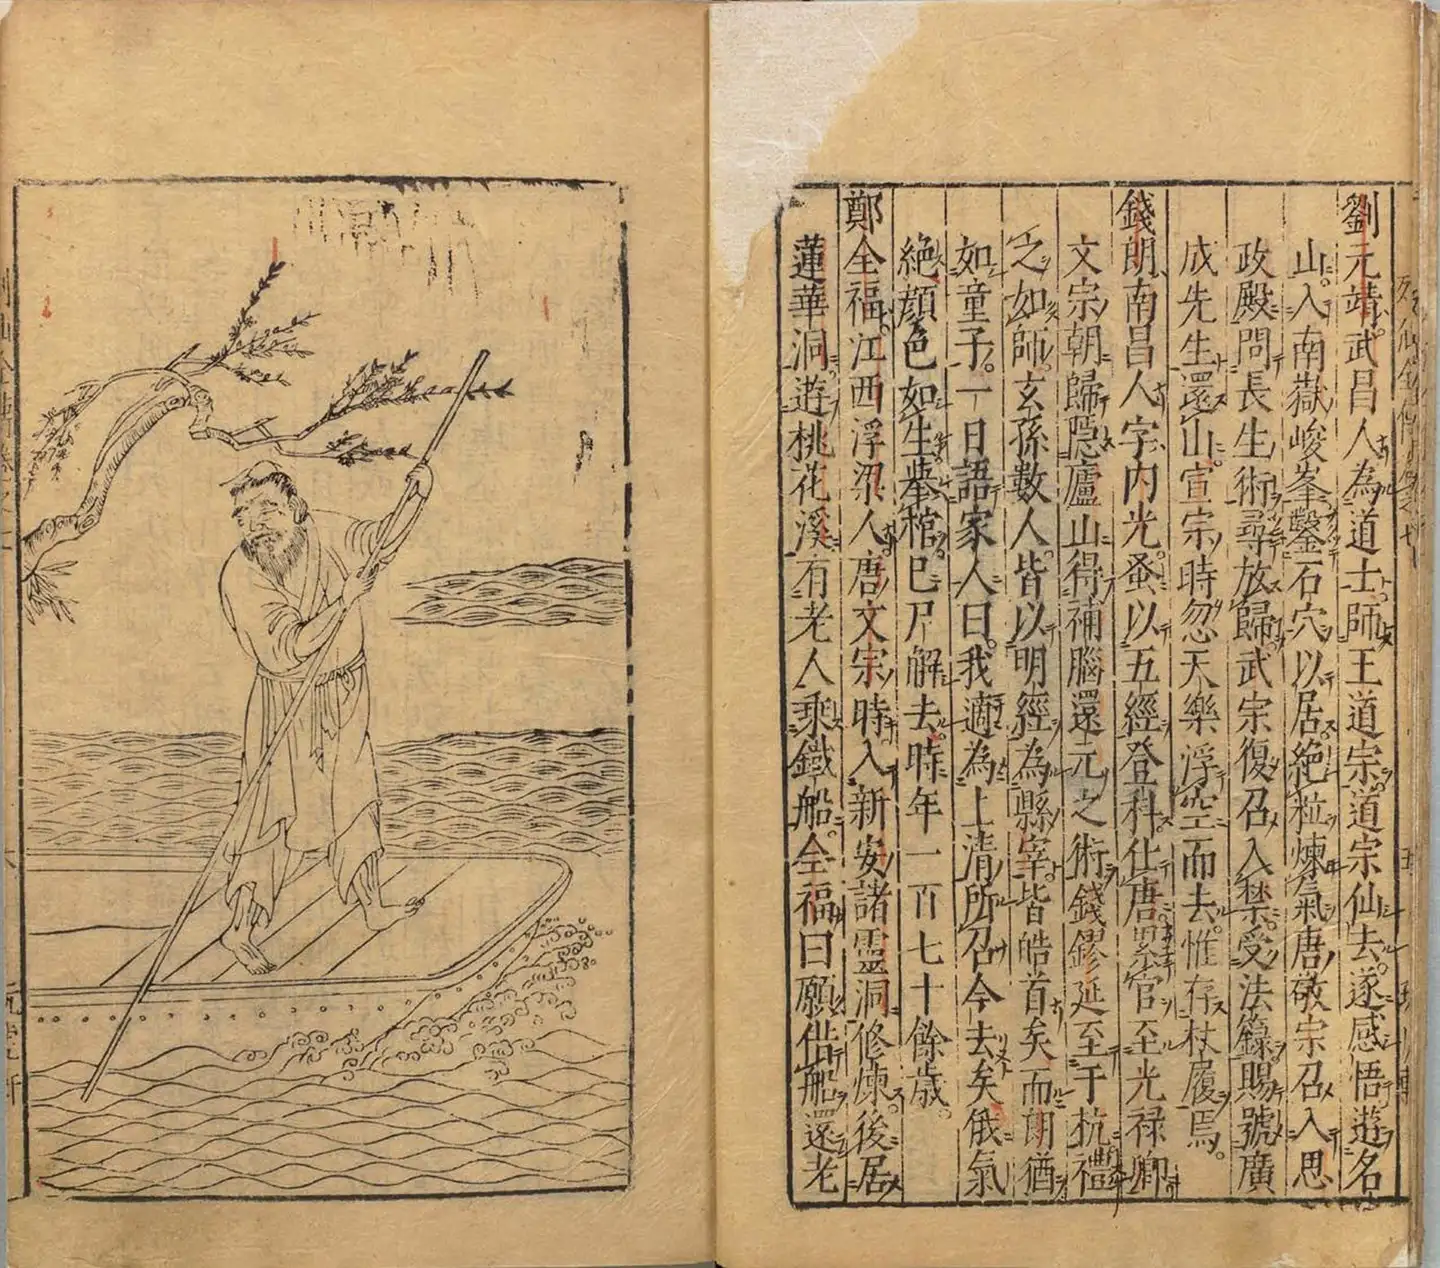 劉元靖。武昌人為道士。師王道宗。道宗仙去。遂感悟遊名
山。入南嶽峻峯鑿石穴以居。絶粒煉氣。唐敬宗召入思
政殿問長生術。尋放歸。武宗復召入禁。受法籙賜號廣
成先生還山。宣宗時忽天樂浮空而去。惟存杖履焉。
錢朗南昌人字内光。蚤以五經登科。仕唐。累官至光禄卿
文宗朝歸隱廬山得補腦還元之術。錢鏐延至于杭禮
之如師。玄孫數人。皆以明經為縣宰。皆皓首矣而朗猶
如童子。一日語家人曰。我適為上清所召今去矣俄氣
絶顔色如生。𦦙棺。已尸解去。時年一百七十餘歳。
鄭全福。江西浮梁人。唐文宗時。入新安諸靈洞修煉。後居
蓮華洞。遊桃花溪有老人乘鐵船。全福曰願偕船還老
列仙全傳卷之七